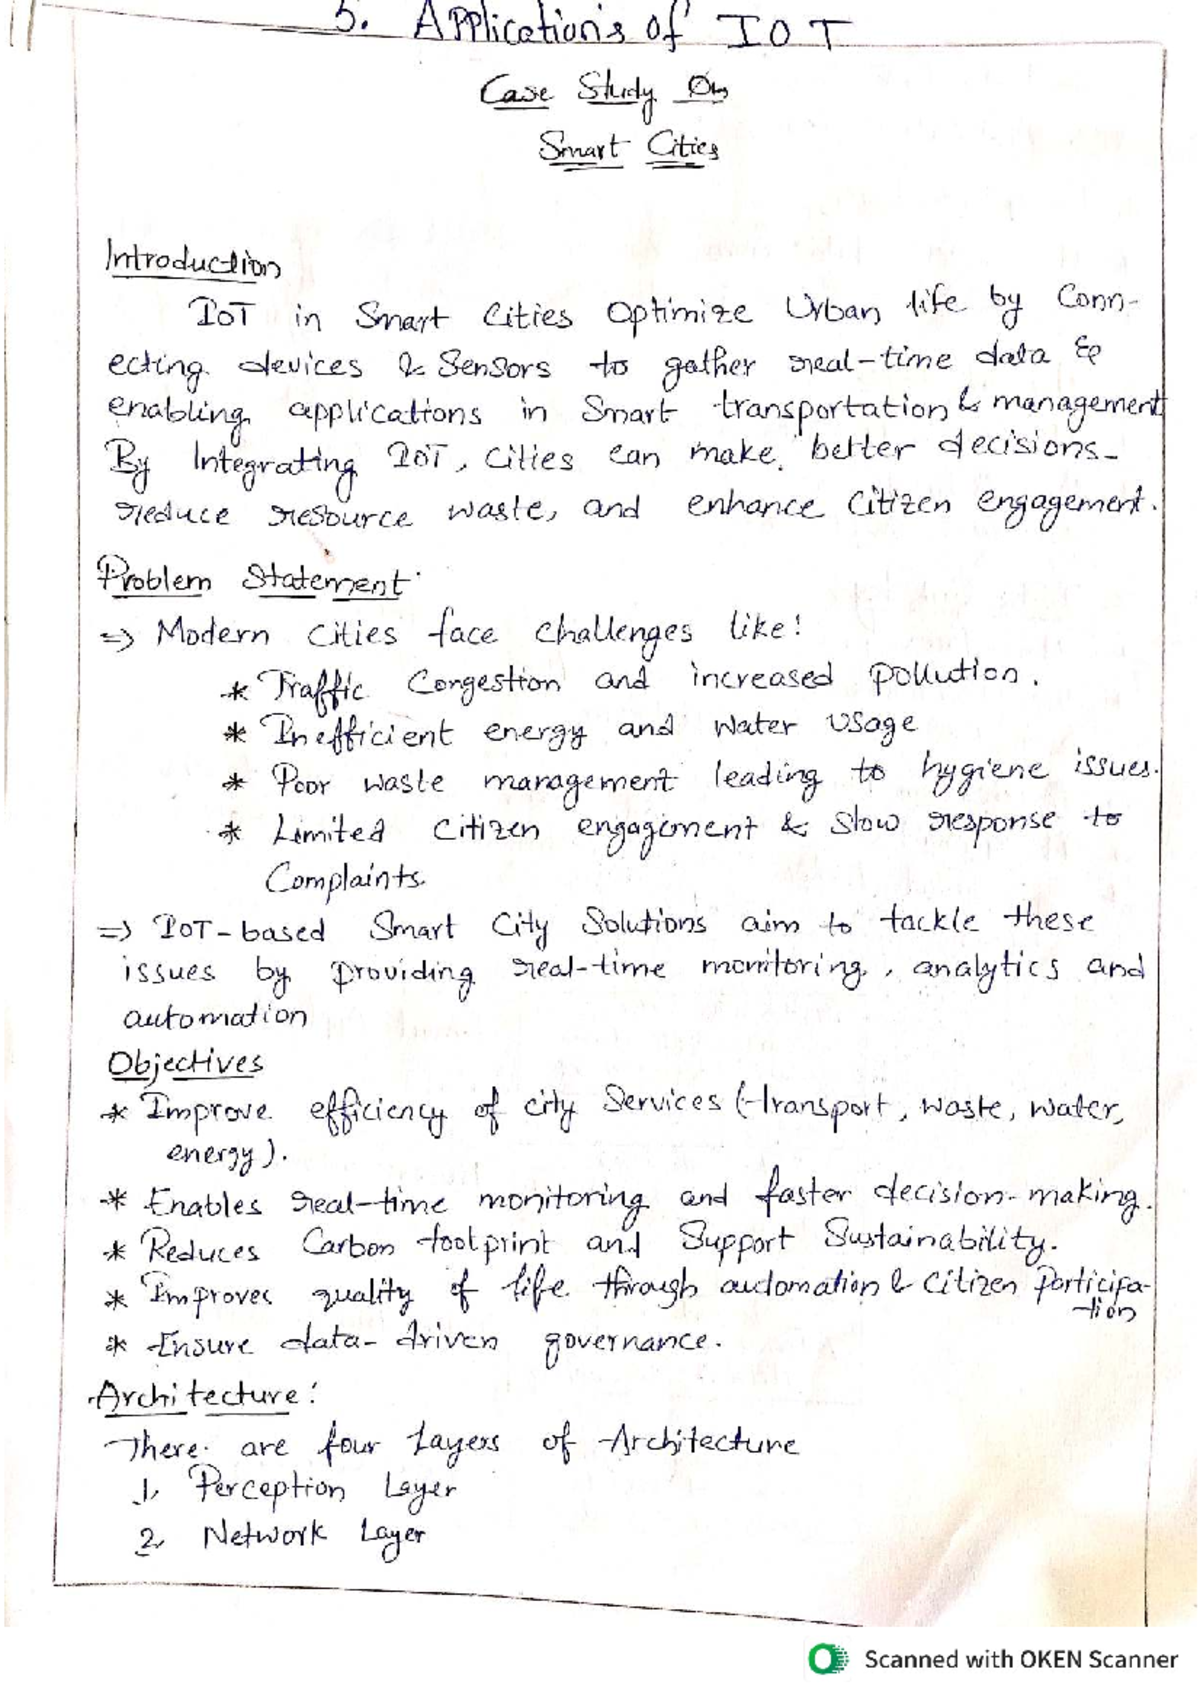 5. Applications of IOT
Case Study On
Smart Cities
Introduction
IoT in Smart Cities Optimize Urban life by Conn-
ecting devices & Sensors to gather real-time data &
enabling applications in Smart transportation & management
By Integrating IoT, Cities can make better decisions-
reduce resource waste, and enhance Citizen engagement.
Problem Statement
=> Modern cities face challenges like!
* Traffic Congestion and increased pollution.
* Inefficient energy and water usage
* Poor waste management leading to hygiene issues.
* Limited Citizen engagement & Slow response to
Complaints.
=> IoT-based Smart City Solutions aim to tackle these
issues by providing real-time monitoring, analytics and
automation
Objectives
* Improve efficiency of city Services (transport, waste, water,
energy).
* Enables real-time monitoring and faster decision-making.
* Reduces Carbon footprint and Support Sustainability.
* Improves quality of life through automation & Citizen Participa-
-tion
* Ensure data-driven governance.
Architecture:
There are four Layers of Architecture
1. Perception Layer
2. Network Layer
Scanned with OKEN Scanner